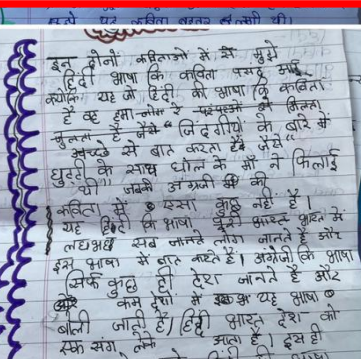 यह कविता बेहतर लगी थी।
इन दोनों कविताओं में से मुझे
हिंदी भाषा कि कविता पसंद आई
क्योंकि यह जो हिंदी की भाषा कि कविता
है वह हमा
जैसे "जिंदगीयों के बारे में
से बात करता है जैसे"
घुट्टी के साथ घोल के माँ ने पिलाई
थी" जबकी अंग्रेजी की
कविता में एसा कुछ नहीं है।
यह हिंदी कि भाषा पूरे भारत में
लोग जानते है और
इस भाषा में बात करते है। अंग्रेजी कि भाषा
सिर्फ कुछ ही देश जानते है और
कम देशों में यह भाषा
बोली जाती है। हिंदी भारत देश को
एक संग लेके आता है। इस ही